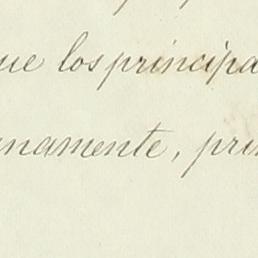 que los principa
namente, prin